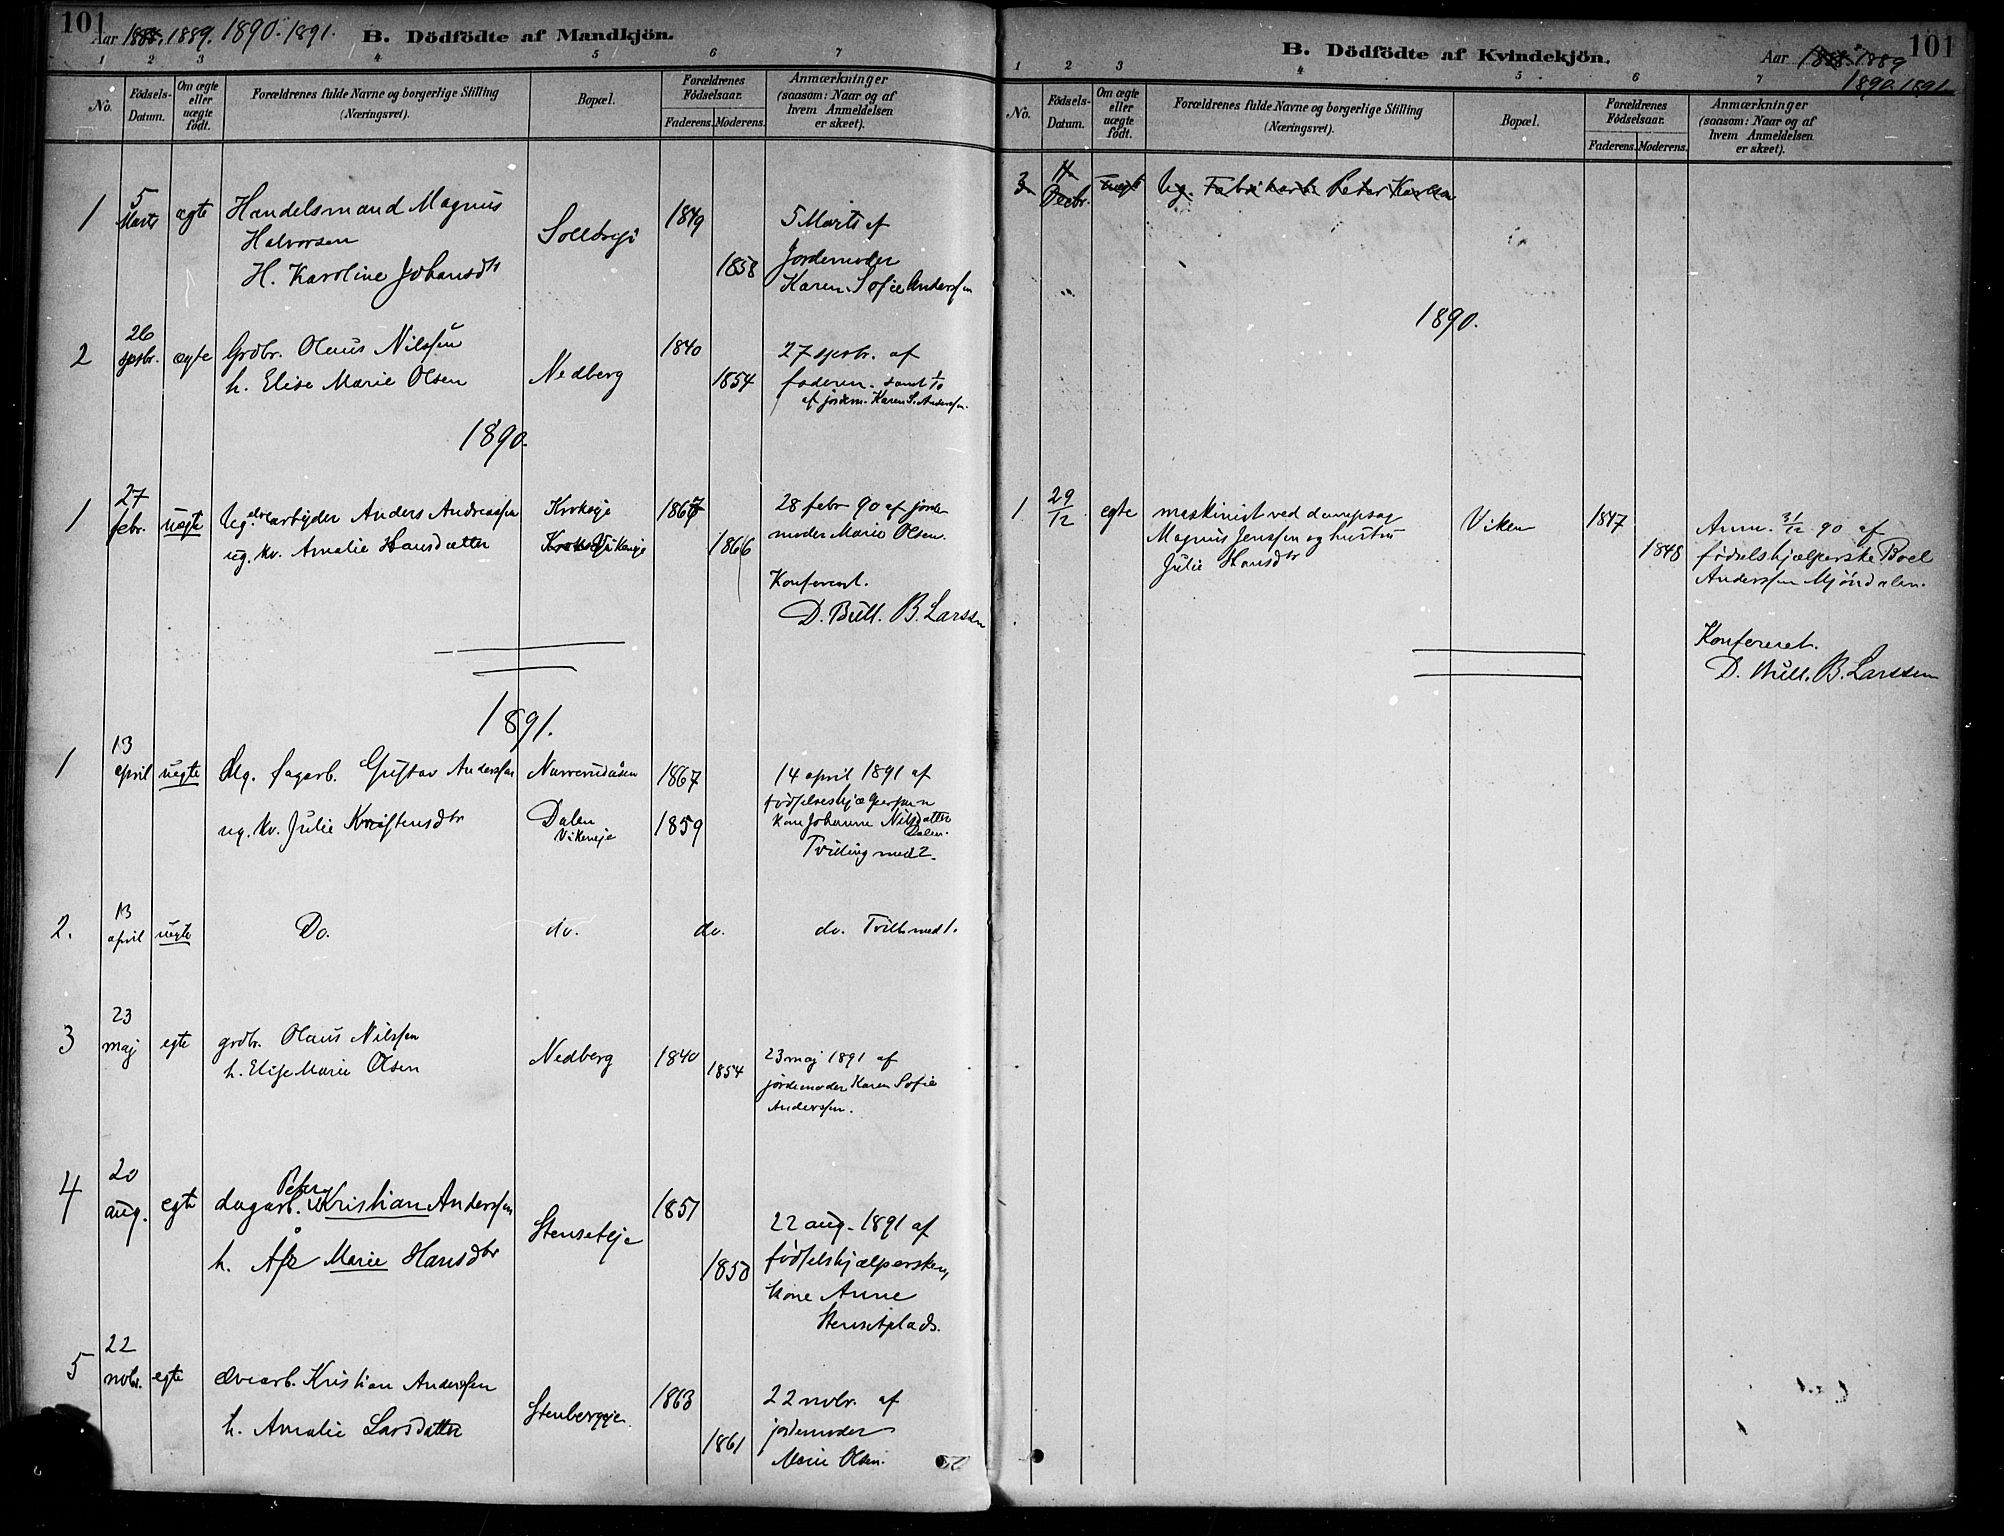 101
Aar 1888. 1889. 1890. 1891.
B. Dödfödte af Mandkjön.
1 2 3 4 5 6 7
No.
Födsels-
Datum.
Om ægte
eller
uægte
födt.
Forældrenes fulde Navne og borgerlige Stilling
(Næringsvei).
Bopæl.
Forældrenes
Födselsaar.
Faderens. Moderens.
Anmærkninger
(saasom: Naar og af
hvem Anmeldelsen
er skeet).
1
5
Marts
ægte
Handelsmand Magnus
Halvorsen
H. Karoline Johansdtr
1849
1858
5 Marts af
Jordemoder
Karen Sofie Anderssen
2
26
spsbr.
ægte
Grdbr. Olaus Nilssen
h. Elise Marie Olsen
Nedberg
1840
1854
27 spsbr. af
faderen. samt 1/10
af jordem. Karen S. Anderssen.
1890.
1
27
febr.
uegte
Ug. elvearbejder Anders Andreassen
ug. kv. Amalie Hansdatter
Krokeje
Vikeneje
1867
1866
28 febr 90 af jorde-
moder Marie Olsen.
Konfereret.
D. Bull. B. Larssen
1891.
1
13
april
uegte
Ug. dagarb. Gustav Anderssen
ug. kv. Julie Kristensdtr
Narverudåsen
Dalen
Vikeneje
1867
1859
14 april 1891 af
födselshjælpersken
kone Johanne Nilsdatter
Dalen.
Tvilling med 2.
2.
13
april
uegte
Do.
do.
do.
do. Tvill. med 1.
3
23
maj
egte
grdbr. Olaus Nilssen
h. Elise Marie Olsen
Nedberg
1840
1854
23 maj 1891 af
jordemoder Karen Sofie
Anderssen.
4
20
aug.
egte
Peter
dagarb. Kristian Anderssen
h. Åse Marie Hansdtr
Stenseteje
1851
1850
22 aug. 1891 af
födselshjælpersken,
kone Anne
Stensetplads.
5
22
nvbr.
egte
elvearb. Kristian Anderssen
h. Amalie Larsdatter
Stenbergeje
1863
1861
22 nvbr. af
jordemoder
Marie Olsen.
B. Dödfödte af Kvindekjön.
Aar 1888. 1889
1890. 1891
101
1 2 3 4 5 6 7
No.
Födsels-
Datum.
Om ægte
eller
uægte
födt.
Forældrenes fulde Navne og borgerlige Stilling
(Næringsvei).
Bopæl.
Forældrenes
Födselsaar.
Faderens. Moderens.
Anmærkninger
(saasom: Naar og af
hvem Anmeldelsen
er skeet).
3
11
Decbr.
uægte
Ug. Fabrikarb. Peter Karlsen
1890.
1
29/12
egte
maskinist ved dampsag
Magnus Jenssen og hustru
Julie Hansdtr
Viken
1847
1848
Anm. 31/12 90 af
födselshjælperske Boel
Anderssen Mjöndalen.
Konfereret.
D. Bull. B. Larssen